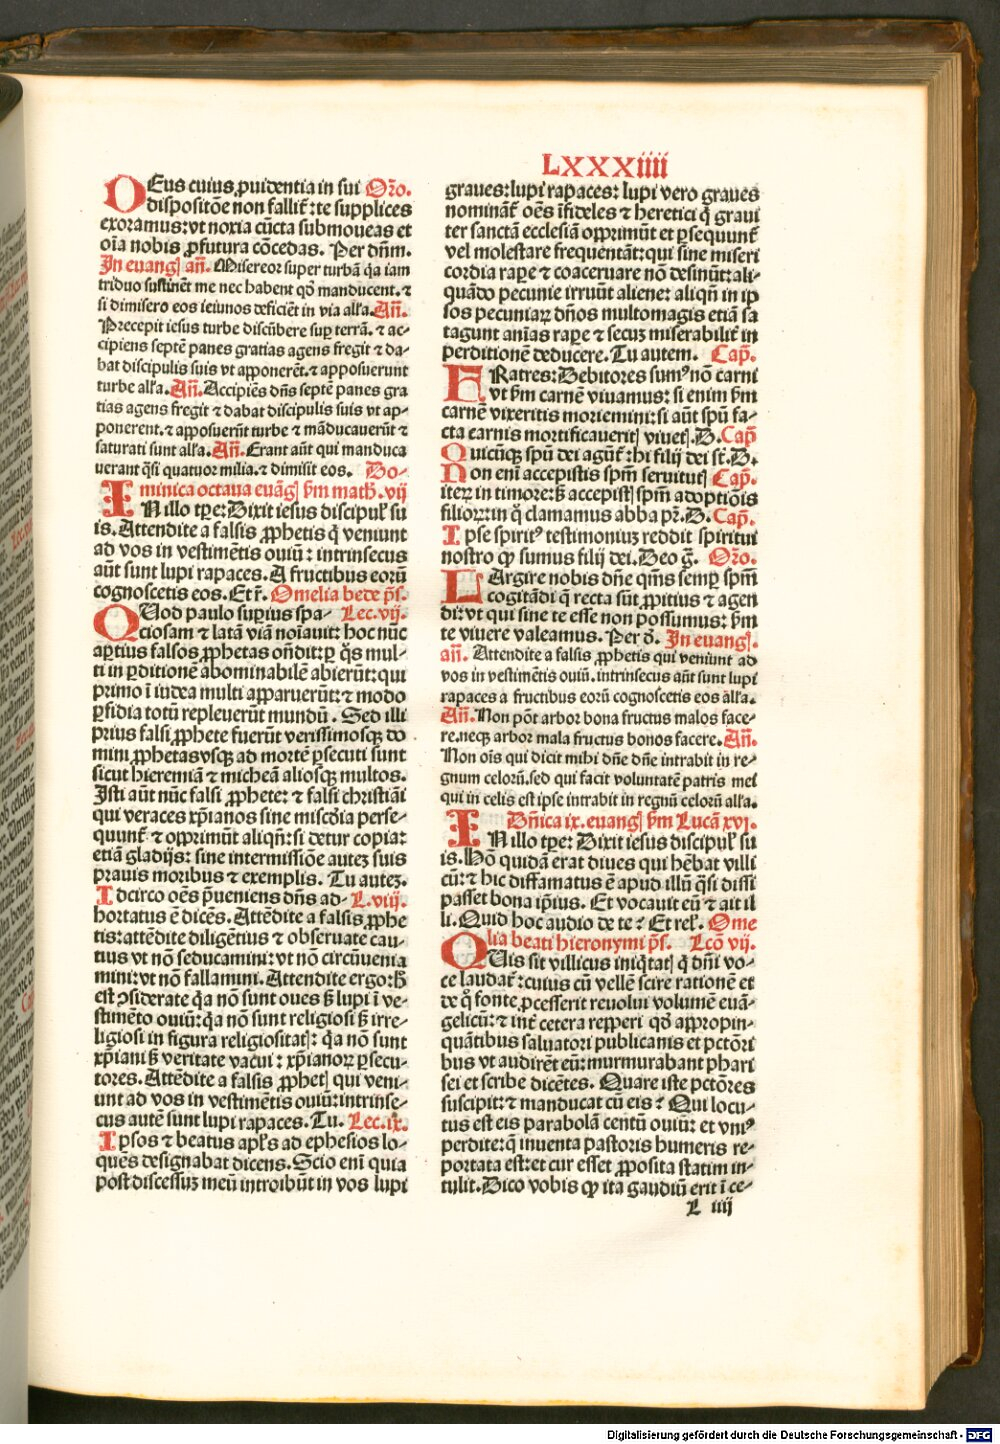 LXXXiiii
DEus cuius ꝓuidentia in sui Or̃o.
dispositiõe non fallit̃: te supplices
exoramus: vt noxia cũcta submoueas et
oĩa nobis ꝓfutura cõcedas. Per dñm.
In euangꝭ añ. Misereor super turbã q̃a iam
triduo sustinẽt me nec habent qõ manducent. ⁊
si dimisero eos ieiunos deficiẽt in via all'a. Añ.
Precepit iesus turbe discũbere sup̱ terrã. ⁊ ac-
cipiens septẽ panes gratias agens fregit ⁊ da-
bat discipulis suis vt apponerẽt. ⁊ apposuerunt
turbe all'a. Añ. Accipiẽs dñs septẽ panes gra
tias agens fregit ⁊ dabat discipulis suis vt ap-
ponerent. ⁊ apposuerũt turbe ⁊ mãducauerũt ⁊
saturati sunt all'a. Añ. Erant aũt qui manduca
uerant q̃si quatuor milia. ⁊ dimisit eos. Do-
minica octaua euãgꝭ ẜm math. vij
IN illo tp̱e: Dixit iesus discipul' su
is. Attendite a falsis ꝓphetis q̃ veniunt
ad vos in vestimẽtis ouiũ: intrinsecus
aũt sunt lupi rapaces. A fructibus eorũ
cognoscetis eos. Et r̃. Omelia bede p̃s.
QUod paulo sup̱ius spa- Lec. vij.
ciosam ⁊ latã viã noĩauit: hoc nũc
ap̱tius falsos ꝓphetas oñdit: p̱ q̃s mul-
ti in p̱ditionẽ abominabilẽ abierũt: qui
primo ĩ iudea multi apparuerũt: ⁊ modo
p̱fidia totũ repleuerũt mundũ. Sed illi
prius falsi ꝓphete fuerũt verissimosqꝫ do
mini ꝓphetas vsqꝫ ad mortẽ p̱secuti sunt
sicut hieremiã ⁊ micheã aliosqꝫ multos.
Isti aũt nũc falsi ꝓphete: ⁊ falsi christiãi
qui veraces xp̃ianos sine miscḋia perse-
quunt̃ ⁊ opprimũt aliqñ: si detur copia:
etiã gladijs: sine intermissiõe autez suis
prauis moribus ⁊ exemplis. Tu autez.
Idcirco oẽs p̃ueniens dñs ad- L. viij.
hortatus ẽ dicẽs. Attẽdite a falsis ꝓphe
tis: attẽdite diligẽtius ⁊ obseruate cau-
tius vt nõ seducamini: vt nõ circũuenia
mini: vt nõ fallamini. Attendite ergo: ħ
est ↄsiderate q̃a nõ sunt oues ẜ lupi ĩ ve-
stimẽto ouiũ: q̃a nõ sunt religiosi ẜ irre-
ligiosi in figura religiositatꝭ: q̃a nõ sunt
xp̃iani ẜ veritate vacui: xp̃ianoꝝ p̱secu-
tores. Attẽdite a falsis ꝓphetꝭ qui veni-
unt ad vos in vestimẽtis ouiũ: intrinse-
cus autẽ sunt lupi rapaces. Tu. Lec. ix.
Ipsos ⁊ beatus apl's ad ephesios lo-
quẽs designabat dicens. Scio enĩ quia
post discessuꝫ meũ introibũt in vos lupi
graues: lupi rapaces: lupi vero graues
nominãt̃ oẽs ĩfideles ⁊ heretici q̃ graui
ter sanctã ecclesiã opprimũt et p̱sequunt̃
vel molestare frequentãt: qui sine miseri
cordia rape̱ ⁊ coaceruare nõ desinũt: ali-
quãdo pecunie irruũt aliene: aliqñ in ip̱
sos pecuniaꝝ dños multomagis etiã sa
tagunt anĩas rape̱ ⁊ secuꝫ miserabilit̃ in
perditionẽ deducere. Tu autem. Cap̃.
FRatres: Debitores sumꝰ nõ carni
vt ẜm carnẽ viuamus: si enim ẜm
carnẽ vixeritis moriemini: si aũt spũ fa-
cta carnis mortificaueritꝭ viuetꝭ. D. Cap̃
Quicũqꝫ spũ dei agũt̃: hi filij dei sт̃. D.
Non enĩ accepistis sp̃m seruitutꝭ Cap̃.
iteꝝ in timore: ẜ accepistꝭ sp̃m adoptiõis
filioꝝ: in q̃ clamamus abba pr̃. D. Cap̃.
Ipse spiritꝰ testimoniuꝫ reddit spiritui
nostro qꝫ sumus filij dei. Deo g̃. Or̃o.
LArgire nobis dñe q̃ms semp̱ sp̃m
cogitãdi q̃ recta sũt ꝓpitius ⁊ agen
di: vt qui sine te esse non possumus: ẜm
te viuere valeamus. Per d̃. In euangꝭ.
añ. Attendite a falsis ꝓphetis qui veniunt ad
vos in vestimẽtis ouiũ. intrinsecus aũt sunt lupi
rapaces a fructibus eorũ cognoscetis eos all'a.
Añ. Non põt arbor bona fructus malos face-
re. neqꝫ arbor mala fructus bonos facere. Añ.
Non oĩs qui dicit mihi dñe dñe intrabit in re-
gnum celorũ. sed qui facit voluntatẽ patris mei
qui in celis est ipse intrabit in regnũ celorũ all'a.
Dñica ix. euangꝭ ẜm Lucã xvi.
IN illo tp̱e: Dixit iesus discipul' su
is. Hõ quidã erat diues qui hẽbat villi
cũ: ⁊ hic diffamatus ẽ apud illũ q̃si dissi
passet bona ip̱ius. Et vocauit eũ ⁊ ait il
li. Quid hoc audio de te? Et rel'. Ome
lia beati hieronymi p̃s. Lcõ vij.
QUis sit villicus iniq̃tatꝭ q̃ dñi vo-
ce laudat̃: cuius cũ vellẽ scire rationẽ et
de q̃ fonte ꝓcesserit reuolui volumẽ euã-
gelicũ: ⁊ int̃ cetera rep̱peri qõ appropin-
quãtibus saluatori publicanis et pctõri
bus vt audirẽt eũ: murmurabant phari
sei et scribe dicẽtes. Quare iste pctõres
suscipit: ⁊ manducat cũ eis? Qui locu-
tus est eis parabolã centũ ouiũ: et vniꝰ
perdite: q̃ inuenta pastoris humeris re-
portata est: et cur esset ꝓposita statim in-
tulit. Dico vobis qꝫ ita gaudiũ erit ĩ ce-
L iiij
Digitalisierung gefördert durch die Deutsche Forschungsgemeinschaft - DFG